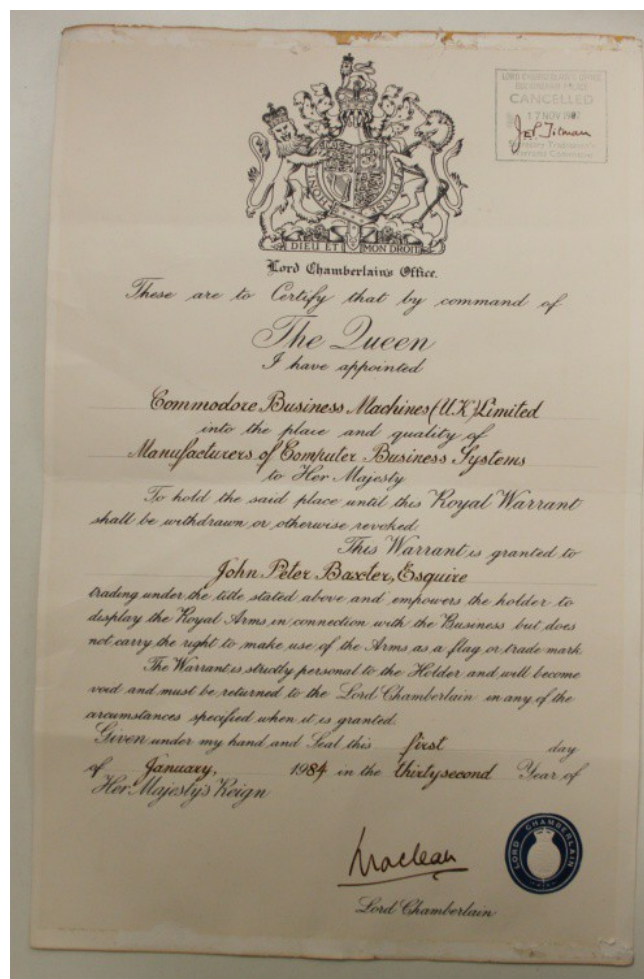 LORD CHAMBERLAIN'S OFFICE
BUCKINGHAM PALACE
CANCELLED
17 NOV 1987
Secretary Tradesmen's
Warrants Committee
HONI
PENSE
DIEU ET MON DROIT
Lord Chamberlain's Office.
These are to Certify that by command of
The Queen
I have appointed
Commodore Business Machines (U.K) Limited
into the place and quality of
Manufacturers of Computer Business Systems
to Her Majesty
To hold the said place until this Royal Warrant
shall be withdrawn or otherwise revoked.
This Warrant is granted to
John Peter Baxter, Esquire
trading under the title stated above and empowers the holder to
display the Royal Arms in connection with the Business but does
not carry the right to make use of the Arms as a flag or trade mark.
The Warrant is strictly personal to the Holder and will become
void and must be returned to the Lord Chamberlain in any of the
circumstances specified when it is granted.
Given under my hand and Seal this first day
of January, 1984 in the thirtysecond Year of
Her Majesty's Reign
Maclean
LORD CHAMBERLAIN
Lord Chamberlain